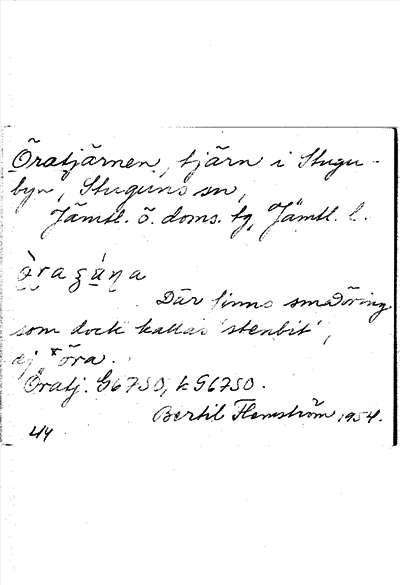 Öratjärnen, tjärn i Stugu-
byn, Stuguns sn,
Jämtl. ö. doms. tg, Jämtl. l.
Där finns småöring
som dock kallas 'stenbit',
ej *öra.
Öratj. G67SO, k G67SO.
Bertil Flemström 1954.
44